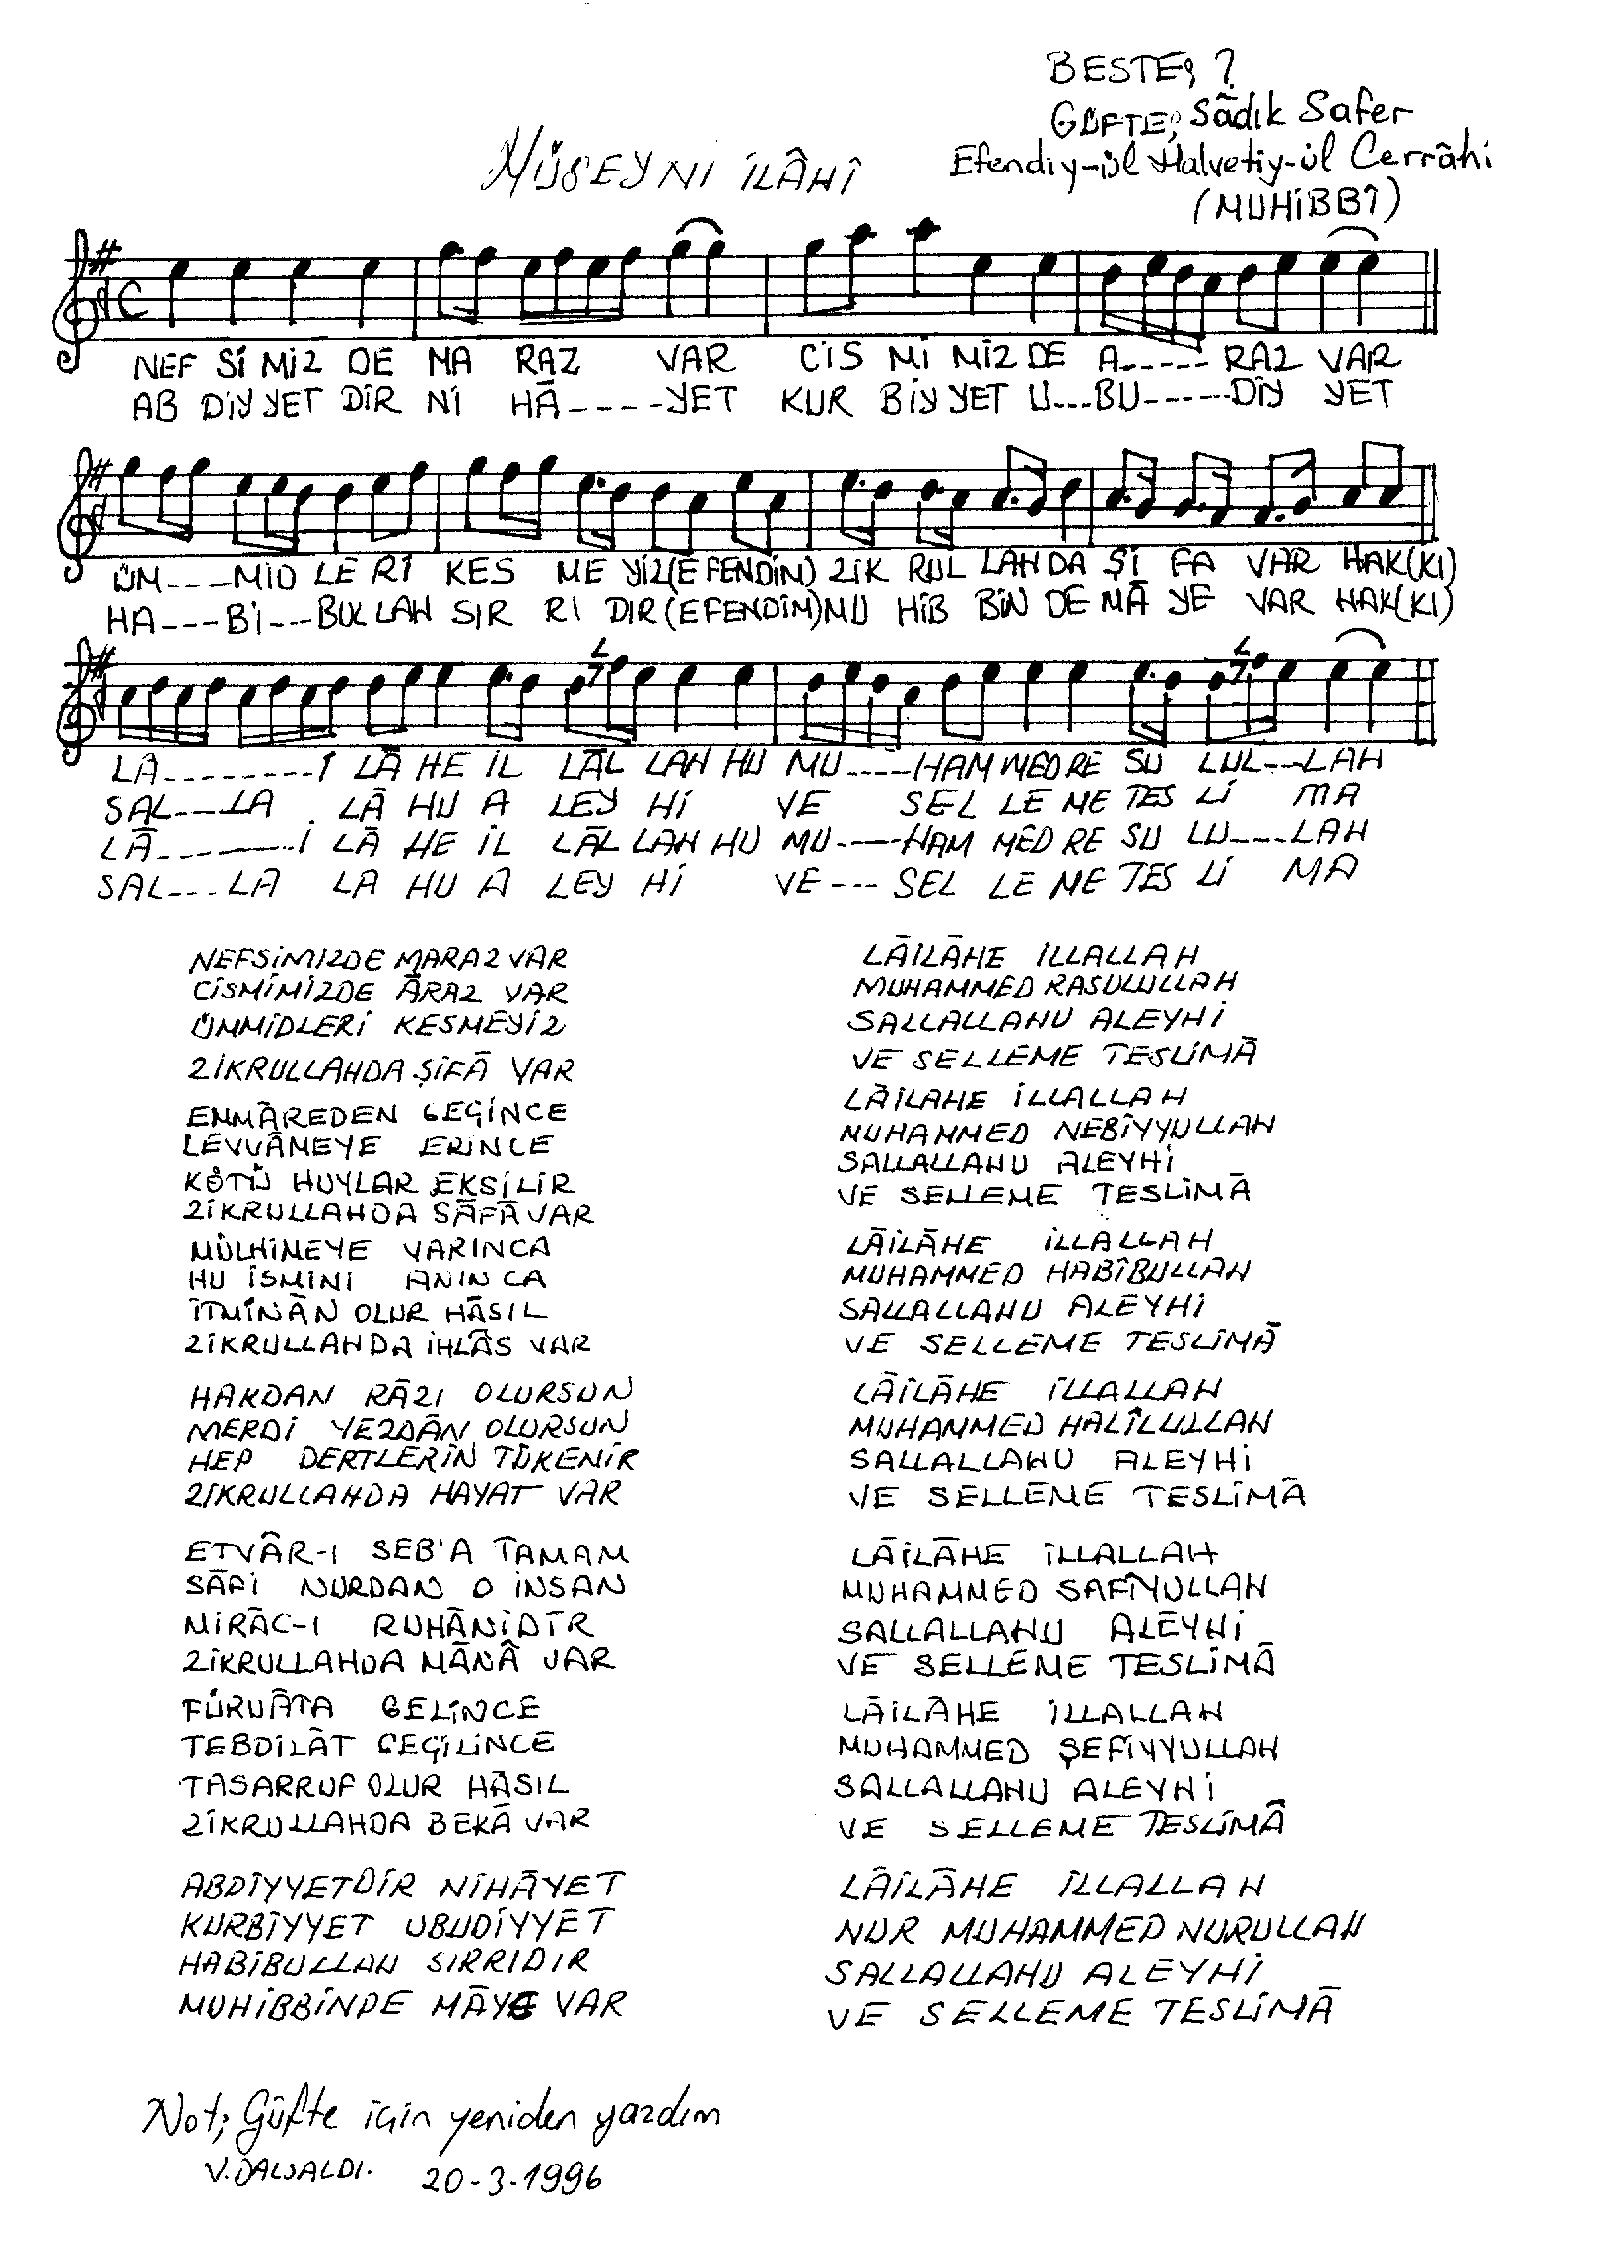 BESTE; ?
GÜFTE; Sâdık Safer
Efendiy-ül Halvetiy-ül Cerrâhi
(MUHİBBÎ)
HÜSEYNİ İLÂHÎ
NEF Sİ MİZ DE MA RAZ VAR CİS Mİ MİZ DE A------ RAZ VAR
AB DİY YET DİR Nİ HÂ-----YET KUR BİY YET U---BU------DİY YET
ÜM----MİD LE Rİ KES ME YİZ(EFENDİM) ZİK RUL LAH DA Şİ FA VAR HAK(KI)
HA----Bİ---BUL LAH SIR RI DIR(EFENDİM)MU HİB BİN DE MÂ YE VAR HAK(KI)
LA---------İ LĀ HE İL LĀL LAH HU MU-----HAM MED RE SU LUL---LAH
SAL----LA LĀ HU A LEY Hİ VE SEL LE ME TES Lİ MA
LĀ---------İ LĀ HE İL LĀL LAH HU MU-----HAM MED RE SU LU----LAH
SAL----LA LA HU A LEY Hİ VE--- SEL LE ME TES Lİ MA
NEFSİMİZDE MARAZ VAR
CİSMİMİZDE ĀRAZ VAR
ÜMMİDLERİ KESMEYİZ
ZİKRULLAHDA ŞİFĀ VAR
EMMĀREDEN GEÇİNCE
LEVVĀMEYE ERİNCE
KÖTÜ HUYLAR EKSİLİR
ZİKRULLAHDA SĀFĀ VAR
MÜLHİMEYE VARINCA
HU İSMİNİ ANINCA
İTMİNĀN OLUR HĀSIL
ZİKRULLAHDA İHLÂS VAR
HAKDAN RĀZI OLURSUN
MERDİ YEZDĀN OLURSUN
HEP DERTLERİN TÜKENİR
ZİKRULLAHDA HAYAT VAR
ETVÂR-I SEB'A TAMAM
SĀFİ NURDAN O İNSAN
MİRĀC-I RUHĀNİDİR
ZİKRULLAHDA MĀNÂ VAR
FÜRUÂTA GELİNCE
TEBDİLÂT GEÇİLİNCE
TASARRUF OLUR HĀSIL
ZİKRULLAHDA BEKĀ VAR
ABDİYYETDİR NİHĀYET
KURBİYYET UBUDİYYET
HABİBULLAH SIRRIDIR
MUHİBBİNDE MĀYE VAR
LĀİLĀHE İLLALLAH
MUHAMMED RASULULLAH
SALLALLAHU ALEYHİ
VE SELLEME TESLİMĀ
LĀİLAHE İLLALLAH
MUHAMMED NEBİYYULLAH
SALLALLAHU ALEYHİ
VE SELLEME TESLİMĀ
LĀİLĀHE İLLALLAH
MUHAMMED HABÎBULLAH
SALLALLAHU ALEYHİ
VE SELLEME TESLİMĀ
LĀİLĀHE İLLALLAH
MUHAMMED HALÎLULLAH
SALLALLAHU ALEYHİ
VE SELLEME TESLİMÂ
LĀİLĀHE İLLALLAH
MUHAMMED SAFÎYULLAH
SALLALLAHU ALEYHİ
VE SELLEME TESLİMĀ
LĀİLĀHE İLLALLAH
MUHAMMED ŞEFİYYULLAH
SALLALLAHU ALEYHİ
VE SELLEME TESLİMÂ
LĀİLĀHE İLLALLAH
NUR MUHAMMED NURULLAH
SALLALLAHU ALEYHİ
VE SELLEME TESLİMĀ
Not; Güfte için yeniden yazdım
V. DALSALDI. 20-3-1996